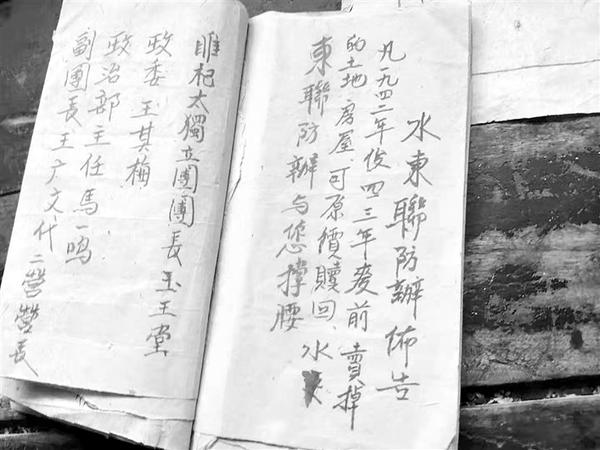 水東聯防辦佈告
凡九四二年後四三年麦前賣掉
的土地房屋、可原價贖回、水
東聯防辦与您撐腰
睢杞太獨立團團長玉王堂
政委王其梅
政治部主任馬一鳴
副團長王广文代二營營長